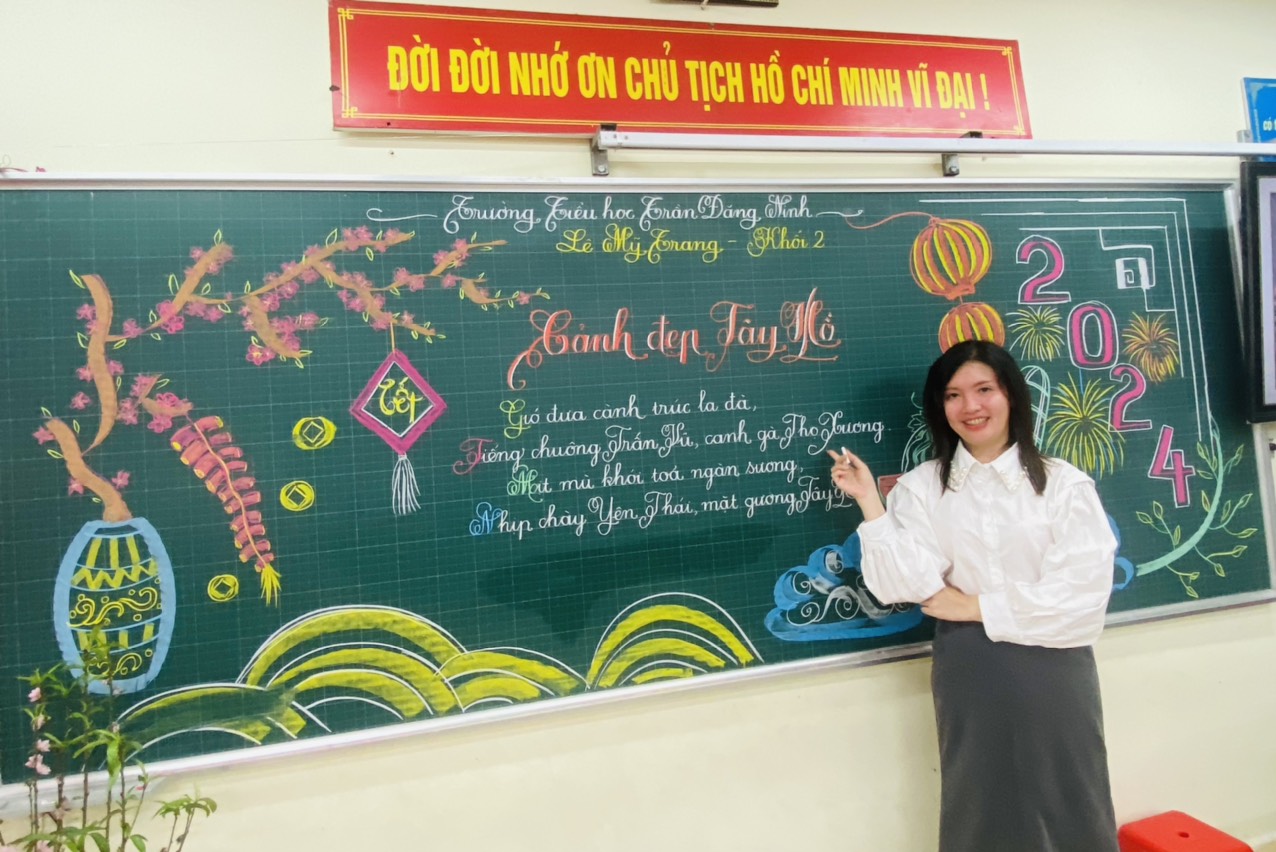 ĐỜI ĐỜI NHỚ ƠN CHỦ TỊCH HỒ CHÍ MINH VĨ ĐẠI !
CÓ
Trường Tiểu học Trần Đăng Ninh
Lê Mỹ Trang - Khối 2
Cảnh đẹp Tây Hồ
Tết
Gió đưa cành trúc la đà,
Tiếng chuông Trấn Vũ, canh gà Thọ Xương.
Mịt mù khói toả ngàn sương,
Nhịp chày Yên Thái, mặt gương Tây
2024